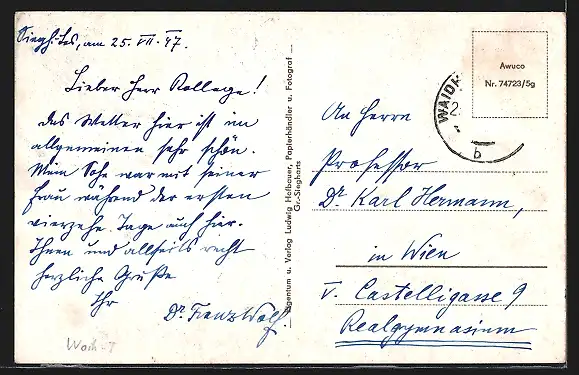 Siegh.-Les, am 25. VII. 47.
Lieber Herr Kollege!
Das Wetter hier ist im
allgemeinen sehr schön.
Mein Sohn war mit seiner
Frau während der ersten
vierzehn Tage auch hier.
Ihnen und allseits recht
herzliche Grüße
Ihr
Dr. Franz Wolf
Agentum u. Verlag Ludwig Hofbauer, Papierhändler u. Fotograf
Gr.-Siegharts
Awuco
Nr. 74723/5g
WAIDH
2
b
An Herrn
Professor
Dr. Karl Hermann,
in Wien
V. Castelligasse 9
Realgymnasium